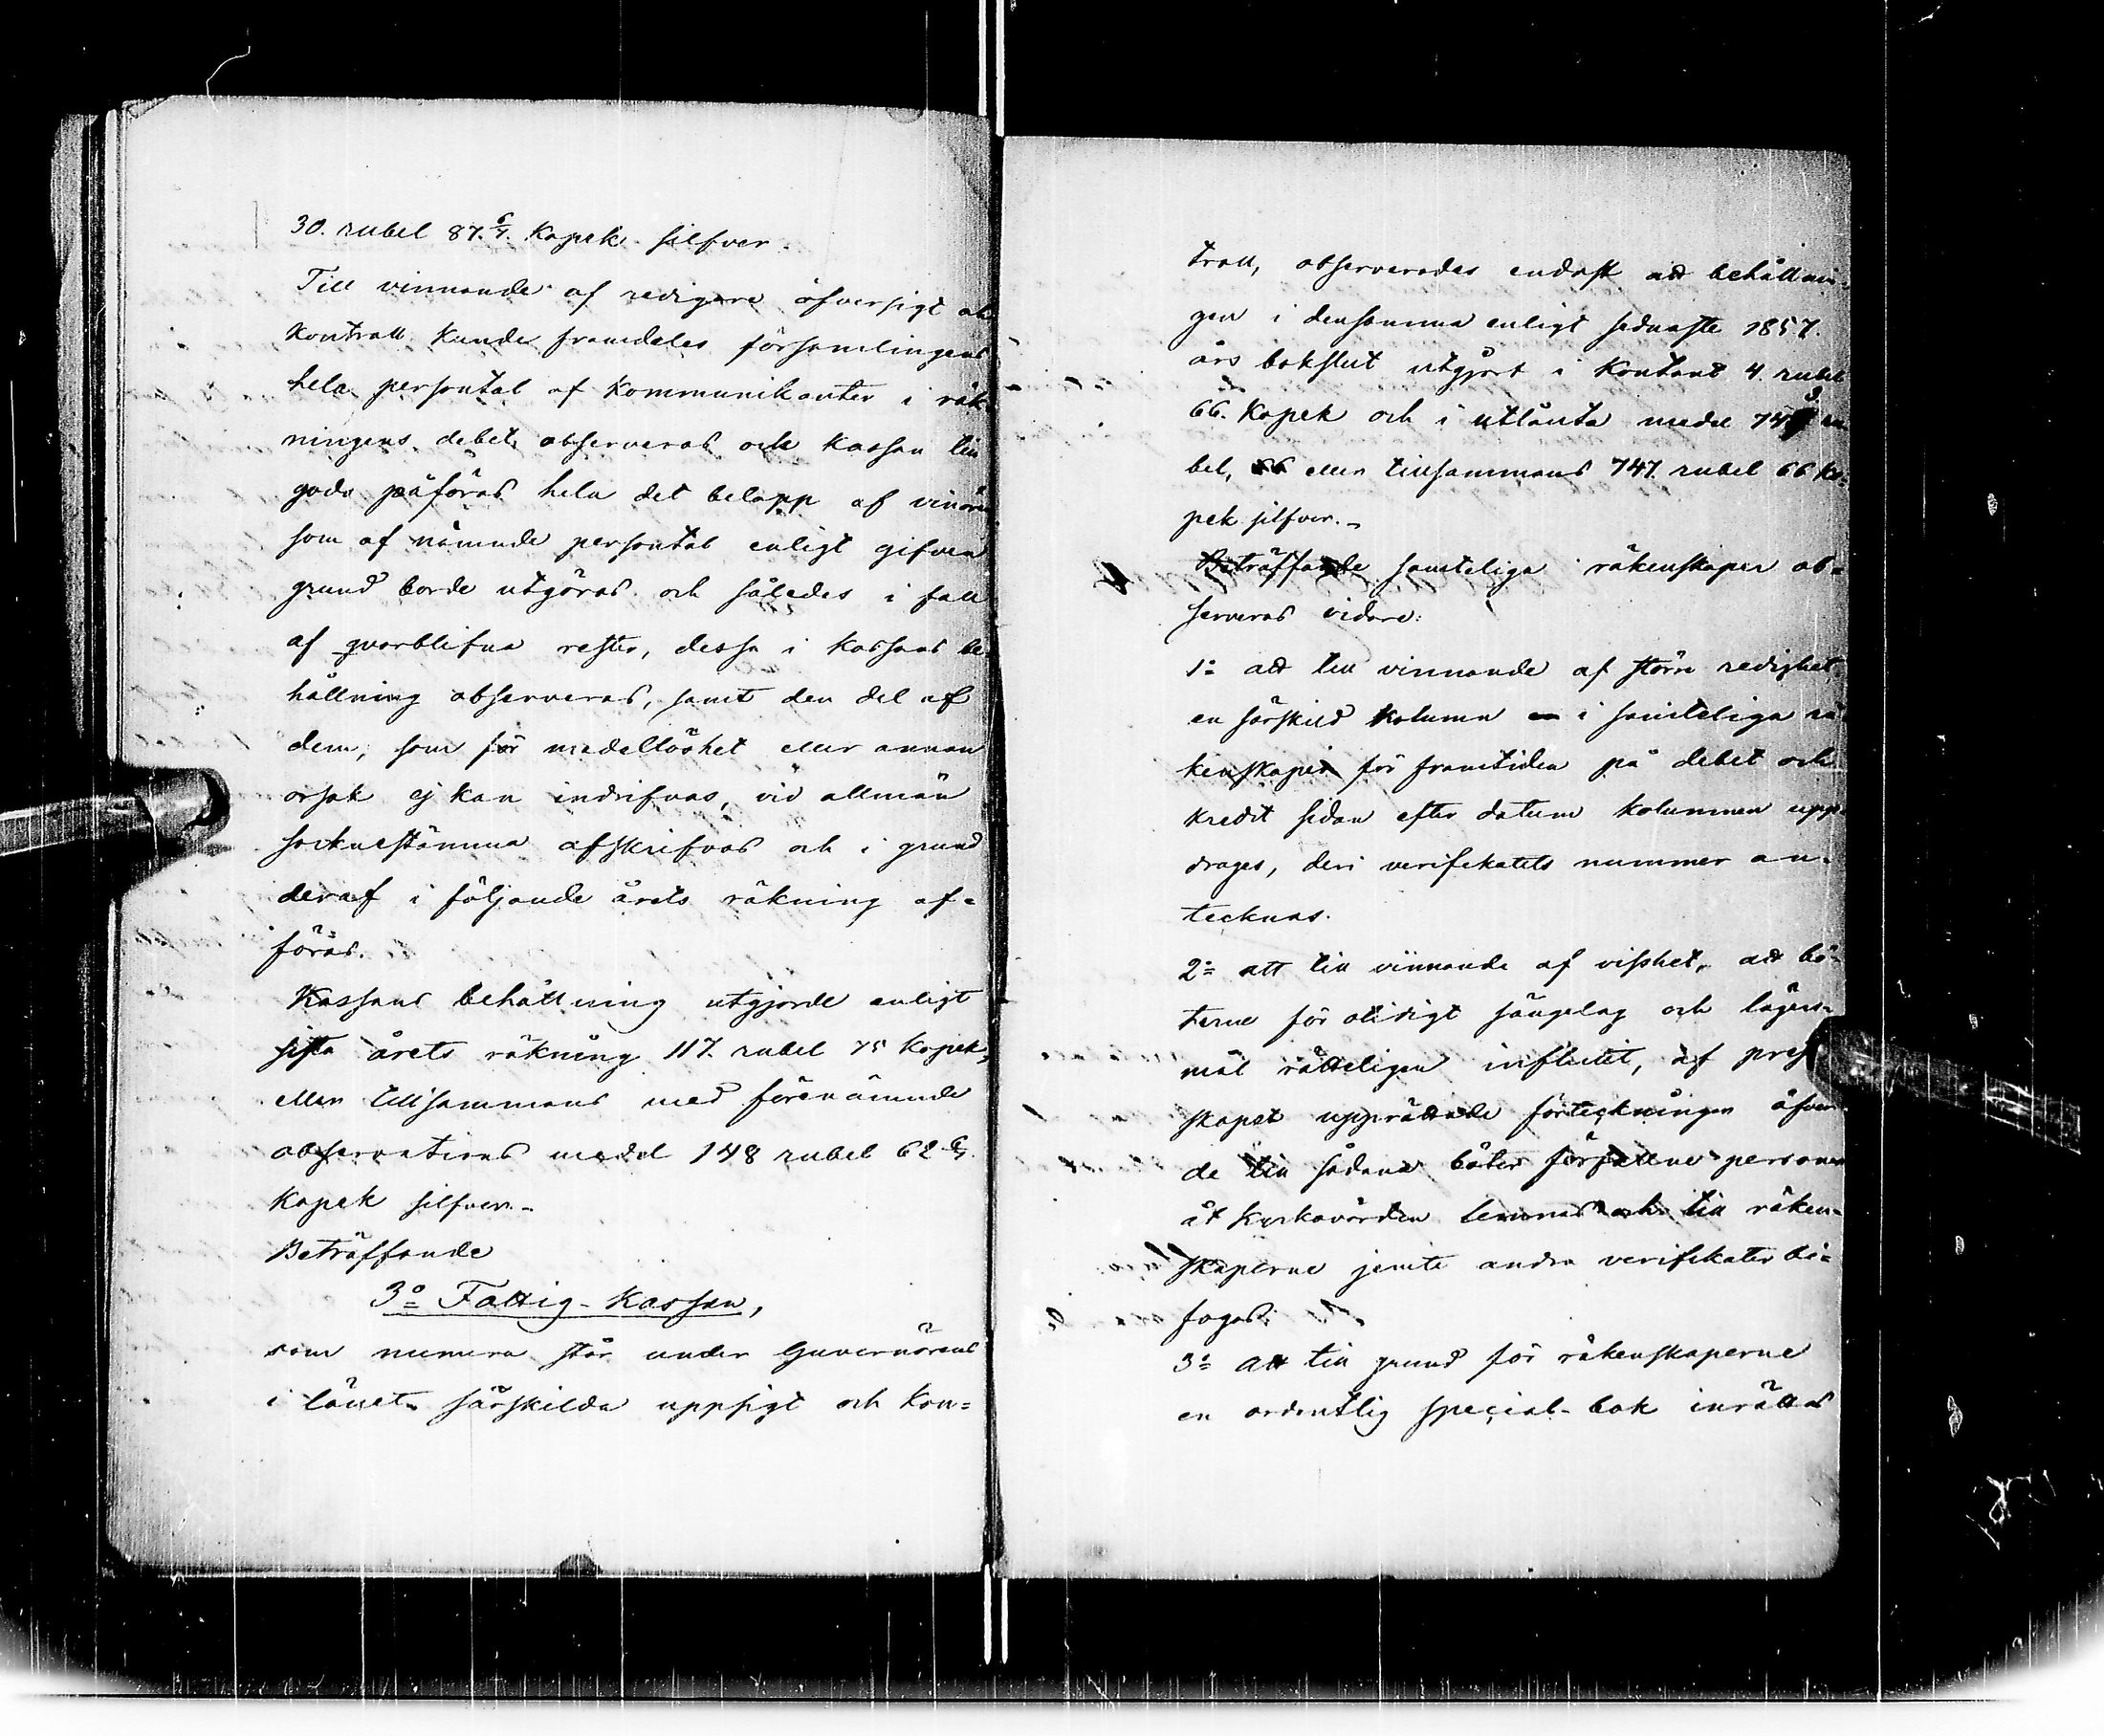 30. rubel 87.6/7. Kopek silfver.
Till vinnande af redigare öfversigt och
kontroll kunde framdeles församlingens
hela persontal af kommunikanter i räk-
ningens debet observeras och kassan till
godo påföras hela det belopp af vinören
som af nämnde persontal enligt gifven
grund borde utgöras och således i fall
af qvarblifna rester, dessa i kassans be-
hållning observeras, samt den del af
dem, som för medellöshet eller annan
orsak ej kan indrifvas, vid allmän
sockne stämma afskrifvas och i grund
deraf i följande årets räkning af-
föras.
Kassans behållning utgjorde enligt
sista årets räkning 117. rubel 75 Kopek,
eller tillsammans med förenämnde
observations medel 148 rubel 62 6/7.
Kopek silfver.-
Beträffande
3o Fattig-Kassan,
som numera står under Guvernörens
i länet särskilda uppsigt och kon-
troll, observerades endast att behållnin-
gen i densamma enligt sednaste 1857.
års bokslut utgjort i kontant 4. rubel
66. Kopek och i utlånta medel 743 ru-
bel, eller tillsammans 747. rubel 66 Ko-
pek silfver.-
Beträffande samteliga räkenskaper ob-
serveras vidare:
1o att till vinnande af större redighet,
en särskild kolumn i samteliga rä-
kenskaper för framtiden på debet och
kredit sidan efter datum kolumnen upp-
drages, deri verifikatets nummer an-
tecknas.
2o att till vinnande af visshet, att bö-
terne för otidigt sängelag och lägers-
mål rätteligen influtit, af prest
skapet upprättade förteckningen öfver
de till sådana böter förfallne personer
åt kyrkovärden lemnas och till räken-
skaperne jemte andra verifikater bi-
fogas.
3o att till grund för räkenskaperne
en ordentlig special-bok inrättas